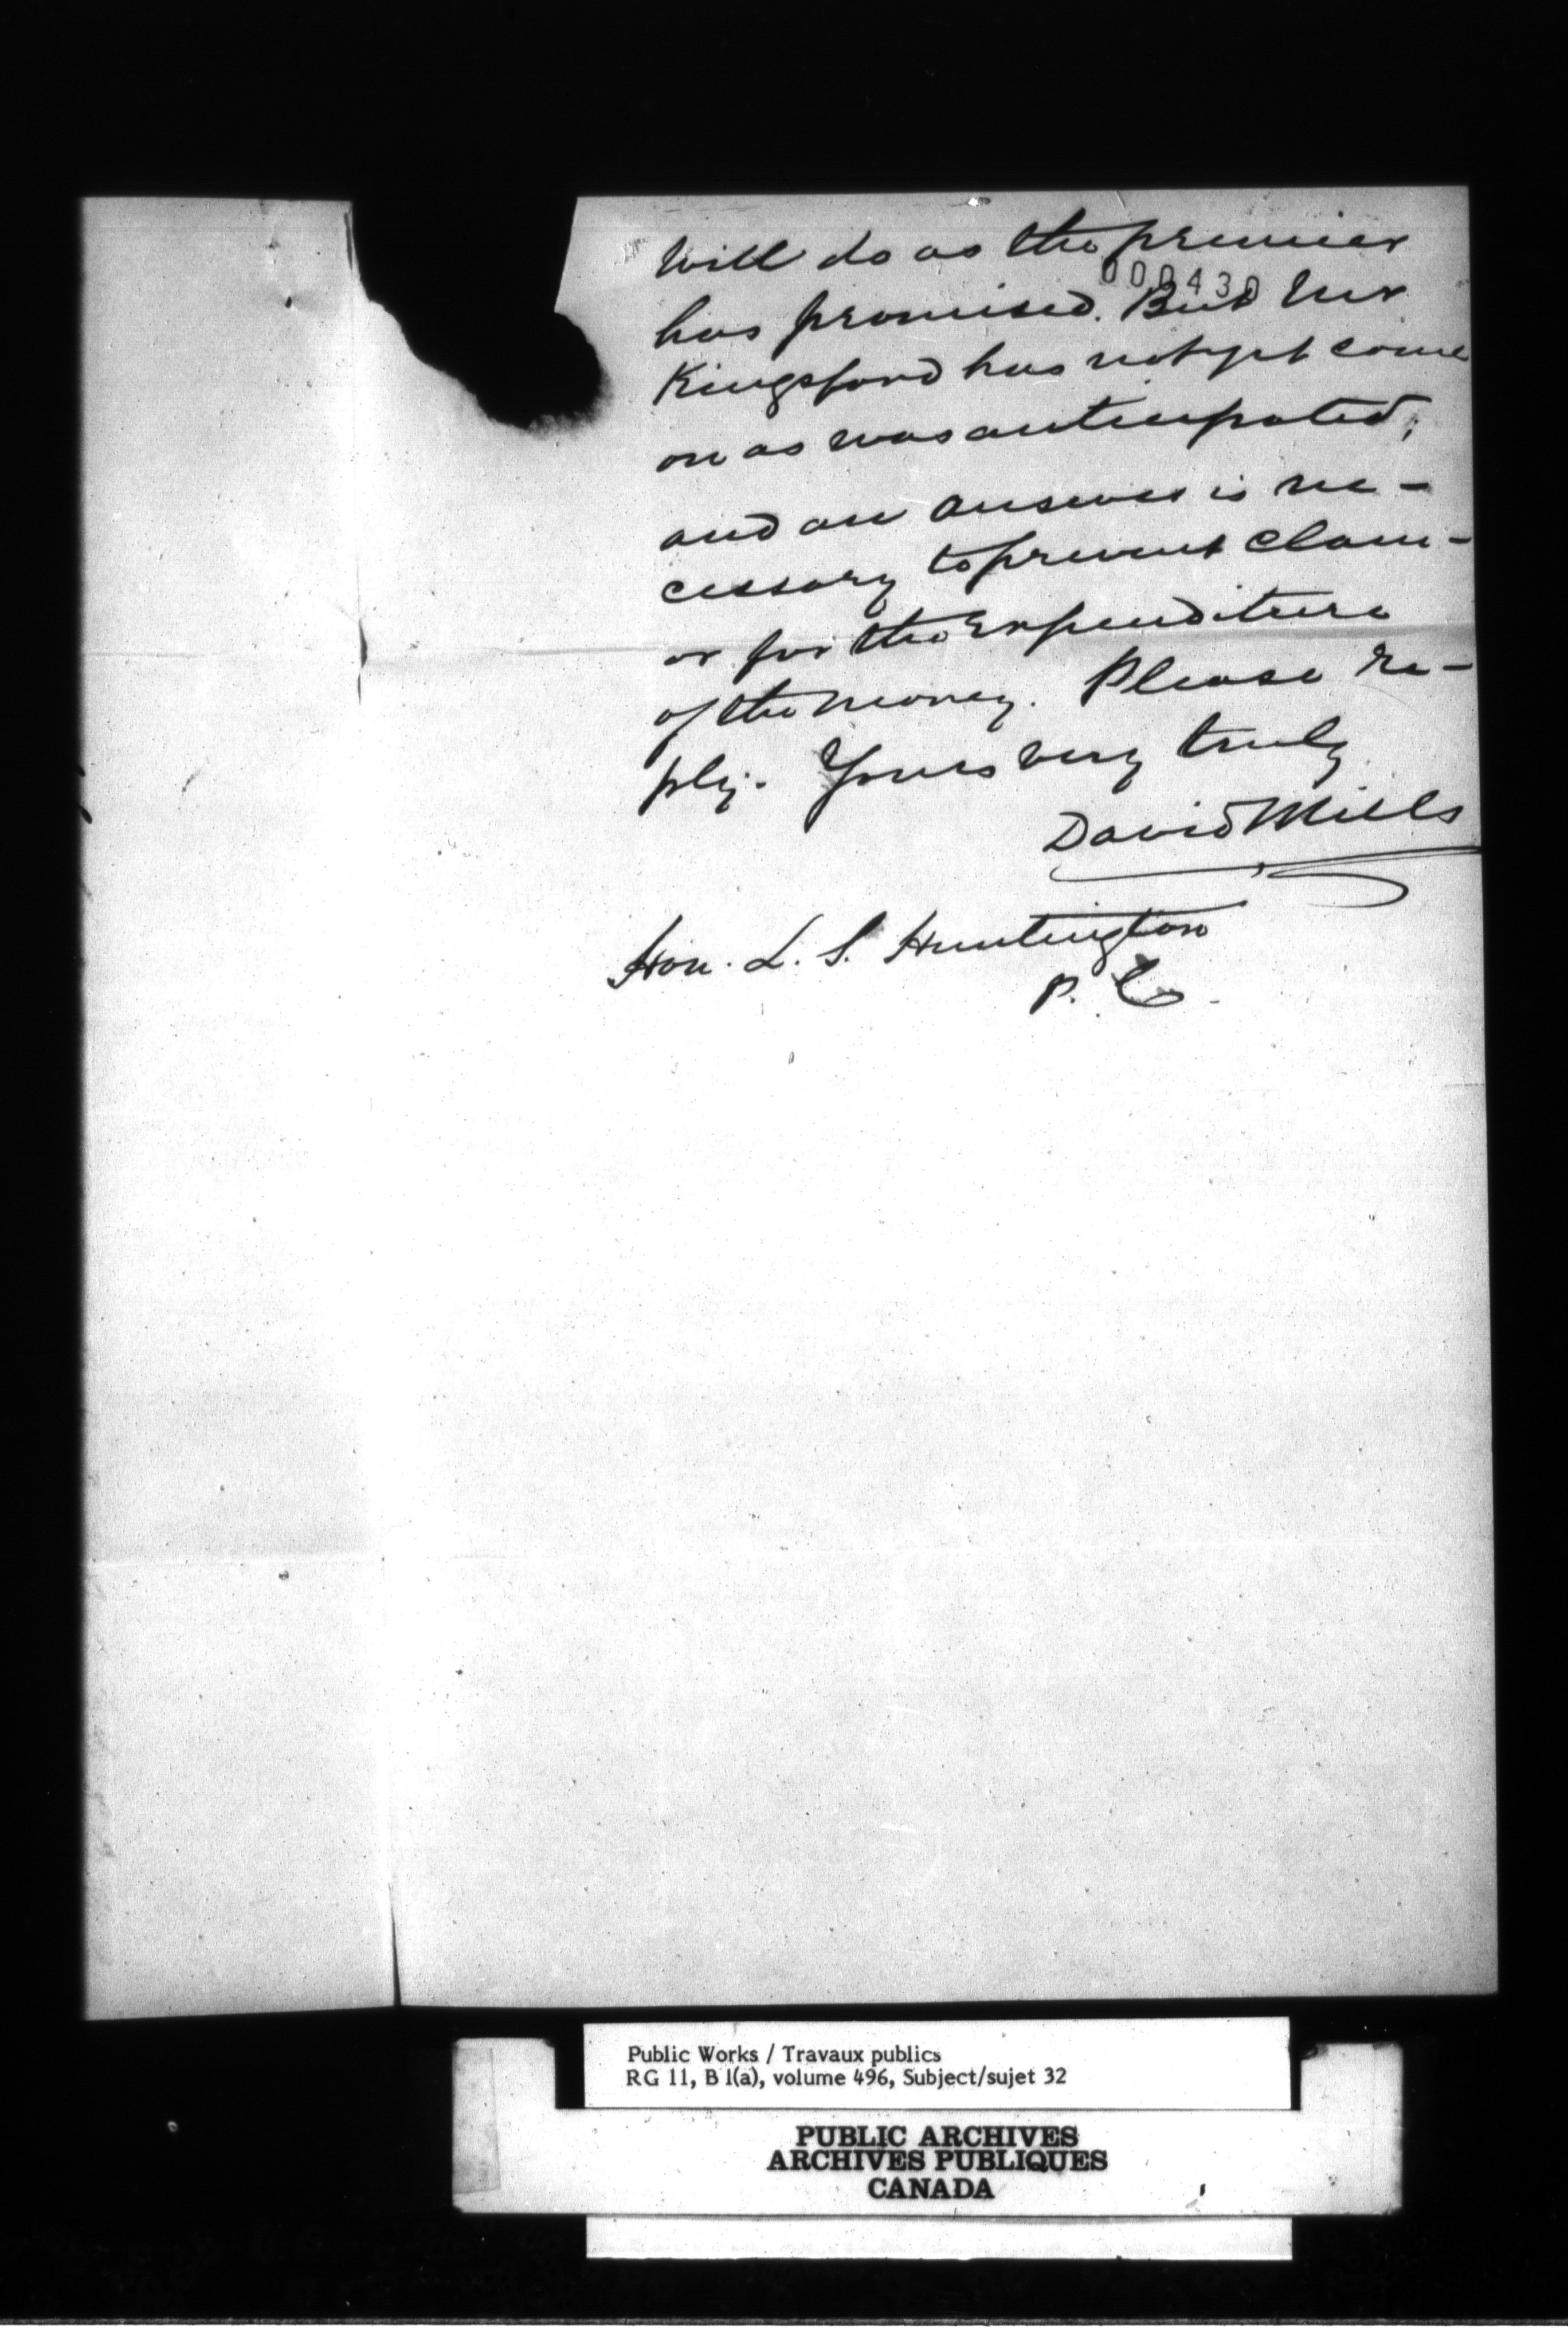 will do as the premier
000430
has promised. But Mr
Kingsford has not yet come
on as was anticipated,
and an answer is ne-
cessary to prevent clam-
or for the expenditure
of the money. Please re-
ply. Yours very truly
David Mills
Hon. L. S. Huntington
P. C.
Public Works / Travaux publics
RG 11, B 1(a), volume 496, Subject/sujet 32
PUBLIC ARCHIVES
ARCHIVES PUBLIQUES
CANADA